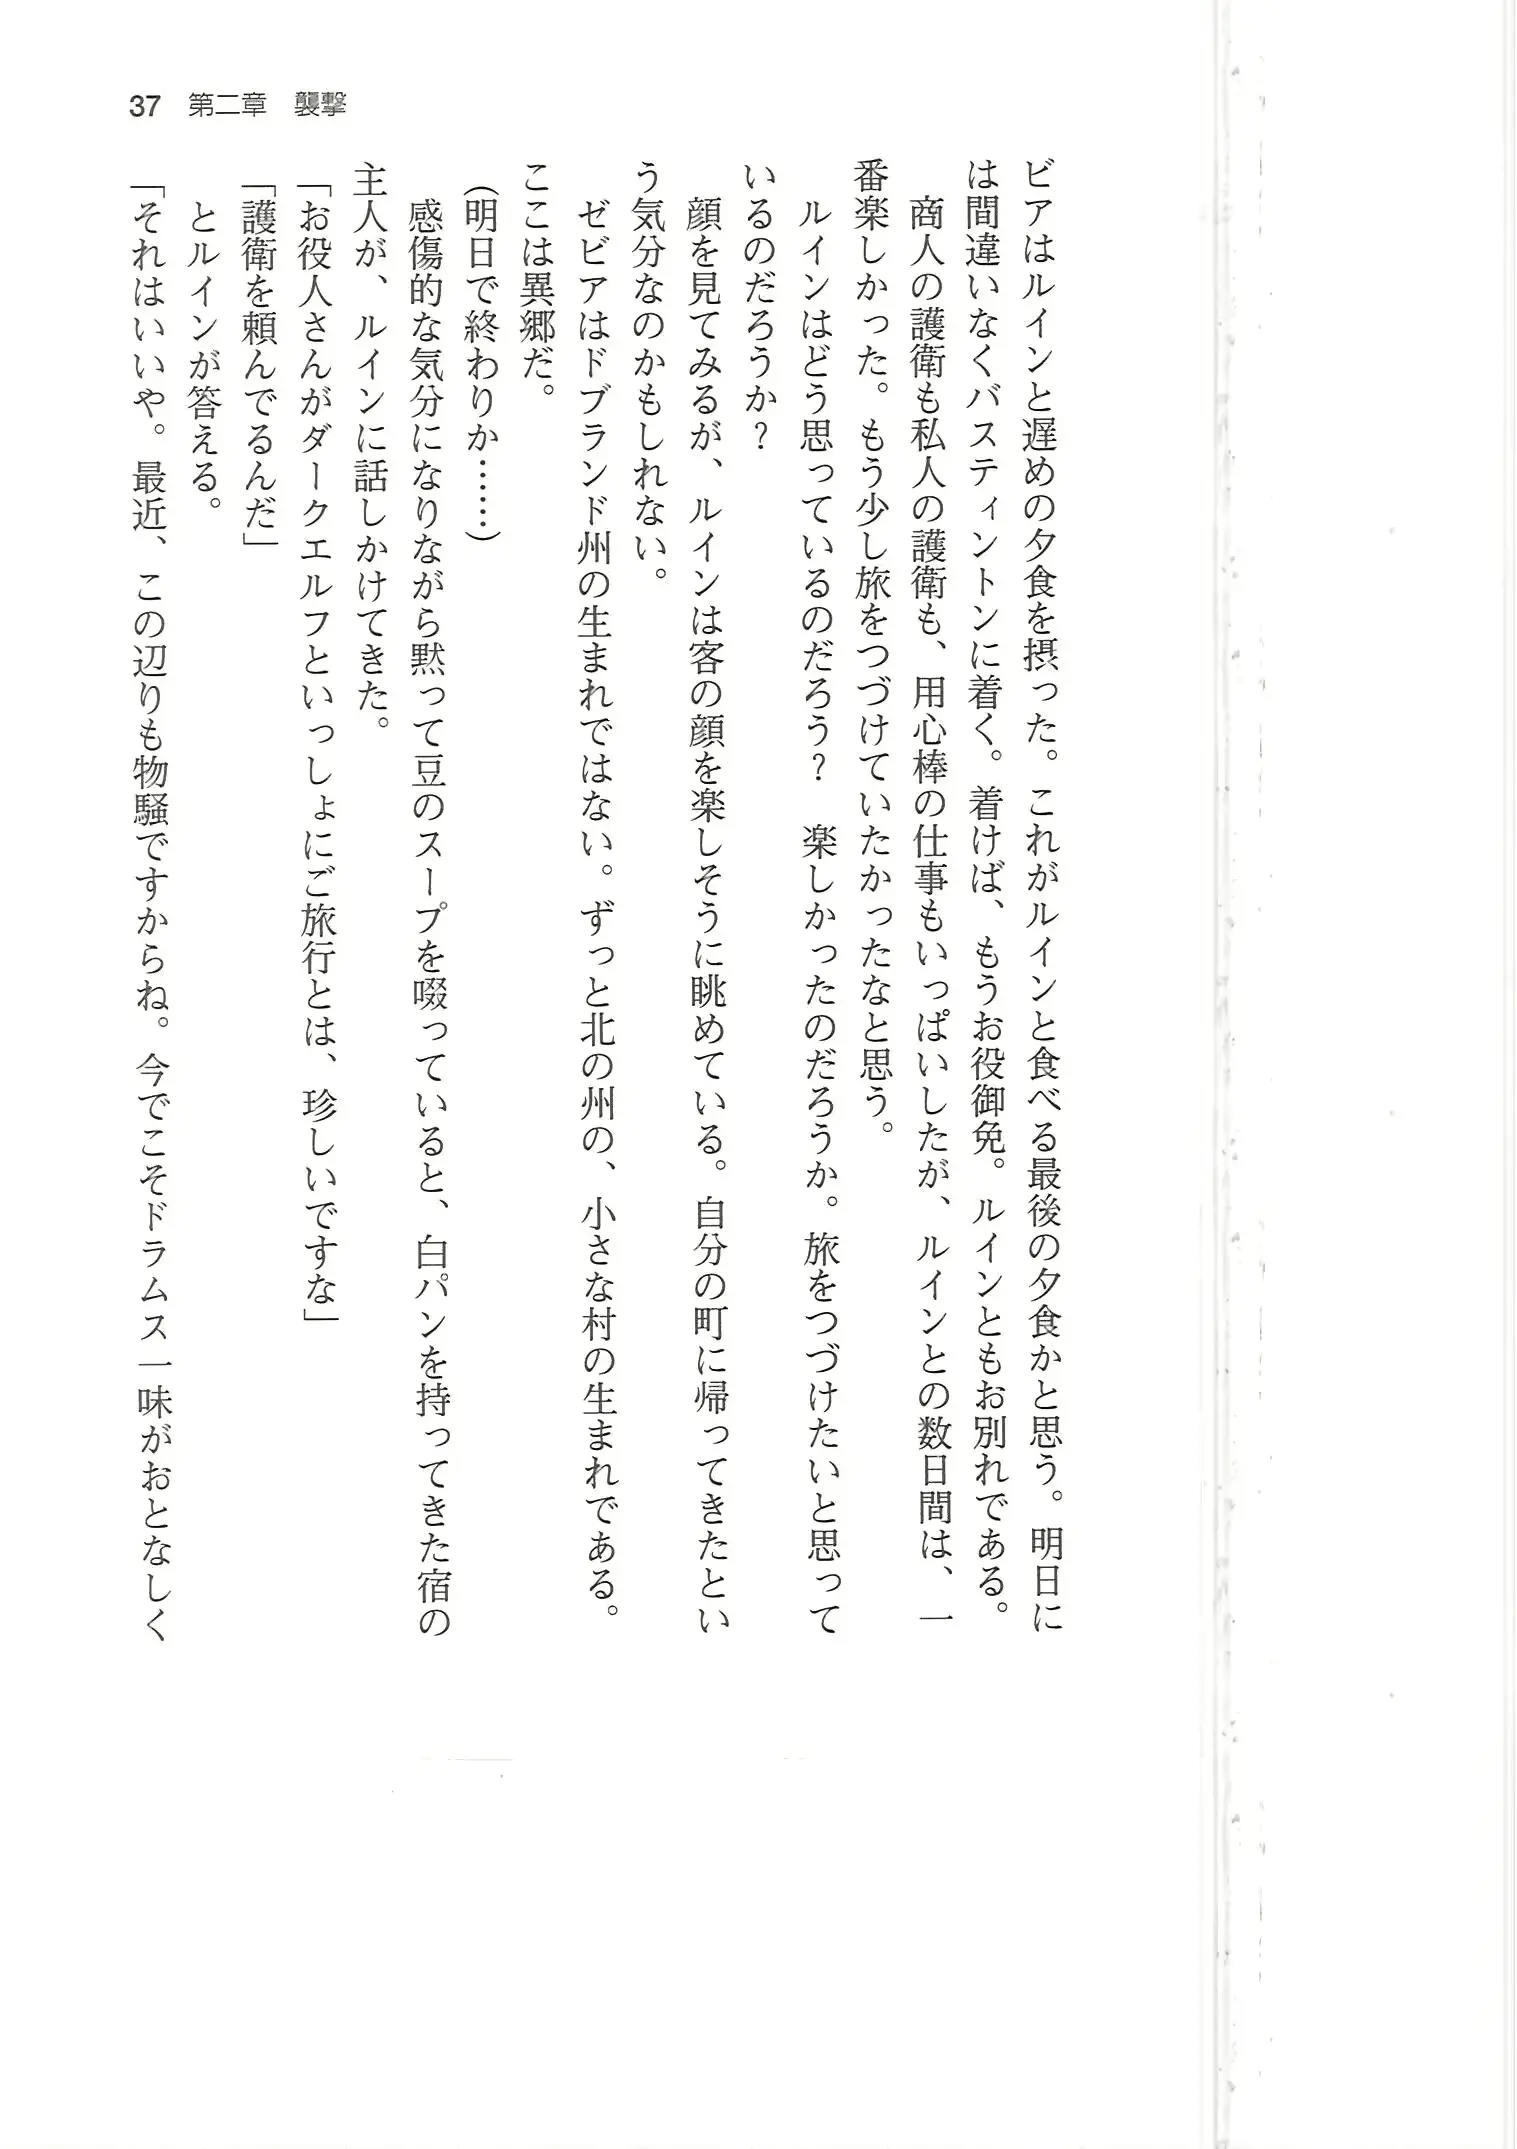 37 第二章 襲撃
ビアはルインと遅めの夕食を摂った。これがルインと食べる最後の夕食かと思う。明日に
は間違いなくバスティントンに着く。着けば、もうお役御免。ルインともお別れである。
　商人の護衛も私人の護衛も、用心棒の仕事もいっぱいしたが、ルインとの数日間は、一
番楽しかった。もう少し旅をつづけていたかったなと思う。
　ルインはどう思っているのだろう？　楽しかったのだろうか。旅をつづけたいと思って
いるのだろうか？
　顔を見てみるが、ルインは客の顔を楽しそうに眺めている。自分の町に帰ってきたとい
う気分なのかもしれない。
　ゼビアはドブランド州の生まれではない。ずっと北の州の、小さな村の生まれである。
ここは異郷だ。
（明日で終わりか……）
　感傷的な気分になりながら黙って豆のスープを啜っていると、白パンを持ってきた宿の
主人が、ルインに話しかけてきた。
「お役人さんがダークエルフといっしょにご旅行とは、珍しいですな」
「護衛を頼んでるんだ」
　とルインが答える。
「それはいいや。最近、この辺りも物騒ですからね。今でこそドラムス一味がおとなしく